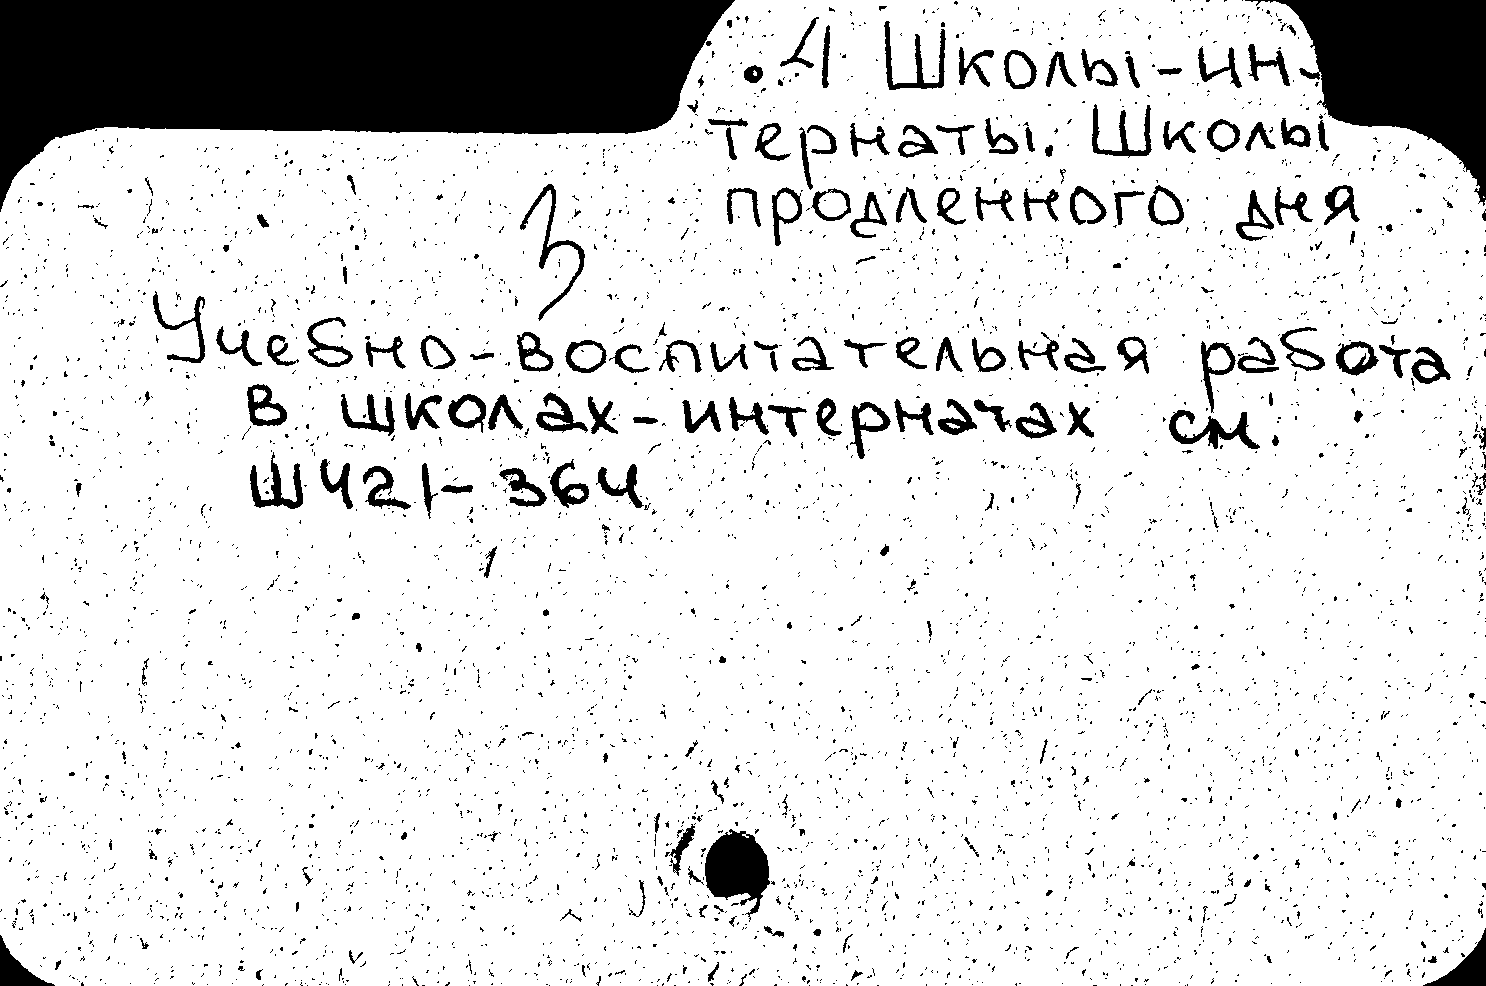 .4 Школы-ин-
тернаты. Школы
продленного дня
3
Учебно-воспитательная работа
в школах-интернатах см.
Ш421-364